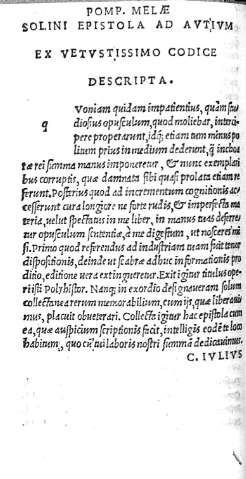 POMP. MELÆ
SOLINI EPISTOLA AD AVTIVM
EX VETVSTISSIMO CODICE
DESCRIPTA.
Voniam quidam impatientius, quàm stu
q diosius opusculum, quod moliebar, interci
pere properarunt, idq; etiam tum minus po
litum prius in medium dederunt, q̃ inchoa
tæ rei summa manus imponeretur, & nunc exemplari
bus corruptis, quæ damnata sibi quasi prolata etiam re
ferunt. Posterius quod ad incrementum cognitionis ac
cesserunt cura longiore ne forte rudis, & imperfecta ma
teria, uelut spectatus in me liber, in manus tuas deferre
tur opusculum sententiæ, à me digestum, ut nosceres mi
si. Primo quod referendus ad industriam tuam fuit tenor
dispositionis, deinde ut scabræ adhuc informationis pro
ditio, editione uera extingueretur. Exit igitur titulus ope
ri isti Polyhistor. Nanq; in exordio designaueram solum
collectanea rerum memorabilium, cum ijs, quæ liberaui
mus, placuit obueterari. Collecta igitur hac epistola cum
ea, quæ auspicium scriptionis fecit, intelligis eodẽ te loco
habitum, quo cũ tui laboris nostri summã dedicauimus.
C. IVLIVS